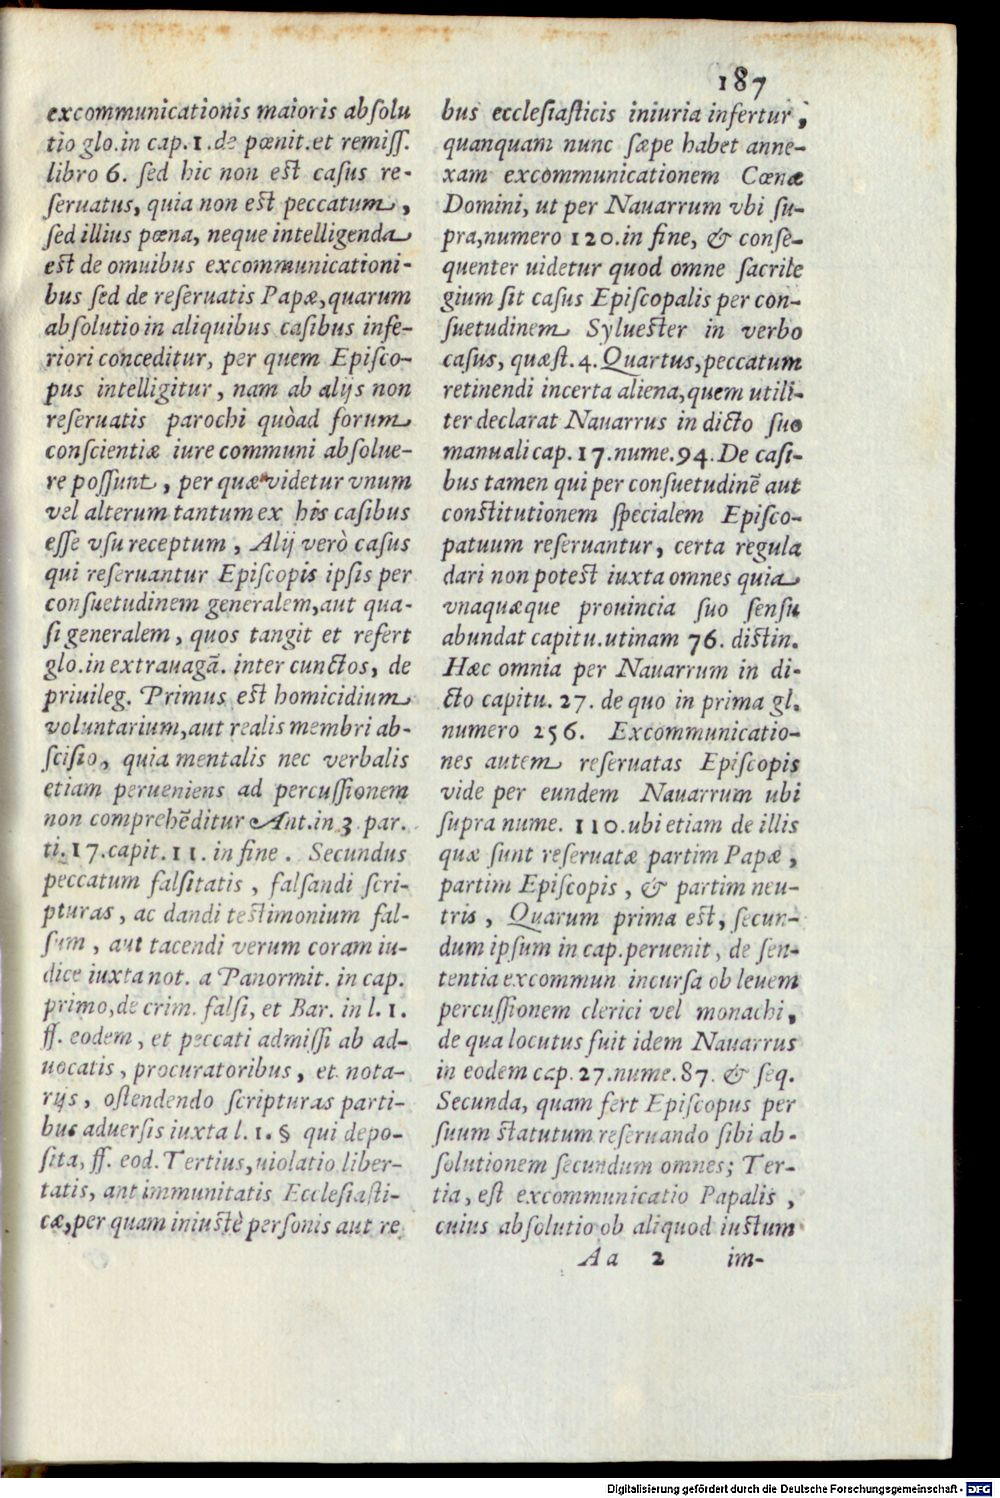 187
excommunicationis maioris abſolu
tio glo.in cap.1.de pœnit.et remiſſ.
libro 6. ſed hic non eſt caſus re-
ſeruatus, quia non eſt peccatum,
ſed illius pœna, neque intelligenda
eſt de omuibus excommunicationi-
bus ſed de reſeruatis Papæ,quarum
abſolutio in aliquibus caſibus infe-
riori conceditur, per quem Epiſco-
pus intelligitur, nam ab alijs non
reſeruatis parochi quòad forum
conſcientiæ iure communi abſolue-
re poſſunt, per quæ videtur vnum
vel alterum tantum ex his caſibus
eſſe vſu receptum, Alij verò caſus
qui reſeruantur Epiſcopis ipſis per
conſuetudinem generalem,aut qua-
ſi generalem, quos tangit et refert
glo.in extrauagã. inter cunctos, de
priuileg. Primus eſt homicidium
voluntarium,aut realis membri ab-
ſciſio, quia mentalis nec verbalis
etiam perueniens ad percuſſionem
non comprehẽditur Ant.in 3. par.
ti.17.capit.11. in fine. Secundus
peccatum falſitatis, falſandi ſcri-
pturas, ac dandi teſtimonium fal-
ſum, aut tacendi verum coram iu-
dice iuxta not. a Panormit. in cap.
primo,de crim. falſi, et Bar. in l. 1.
ff. eodem, et peccati admiſſi ab ad-
uocatis, procuratoribus, et nota-
rijs, oſtendendo ſcripturas parti-
bus aduerſis iuxta l. 1. § qui depo-
ſita, ff. eod. Tertius,uiolatio liber-
tatis, ant immunitatis Eccleſiaſti-
cæ,per quam iniuſtè perſonis aut re
bus eccleſiaſticis iniuria infertur,
quanquam nunc ſæpe habet anne-
xam excommunicationem Cœnæ
Domini, ut per Nauarrum vbi ſu-
pra,numero 120.in fine, & conſe-
quenter uidetur quod omne ſacrile
gium ſit caſus Epiſcopalis per con-
ſuetudinem Sylueſter in verbo
caſus, quæſt. 4. Quartus,peccatum
retinendi incerta aliena,quem utili-
ter declarat Nauarrus in dicto ſuo
manuali cap. 17.nume.94. De caſi-
bus tamen qui per conſuetudinẽ aut
conſtitutionem ſpecialem Epiſco-
patuum reſeruantur, certa regula
dari non poteſt iuxta omnes quia
vnaquæque prouincia ſuo ſenſu
abundat capitu.utinam 76. diſtin.
Hæc omnia per Nauarrum in di-
cto capitu. 27. de quo in prima gl.
numero 256. Excommunicatio-
nes autem reſeruatas Epiſcopis
vide per eundem Nauarrum ubi
ſupra nume. 110.ubi etiam de illis
quæ ſunt reſeruatæ partim Papæ,
partim Epiſcopis, & partim neu-
tris, Quarum prima eſt, ſecun-
dum ipſum in cap.peruenit, de ſen-
tentia excommun incurſa ob leuem
percuſſionem clerici vel monachi,
de qua locutus fuit idem Nauarrus
in eodem cap. 27.nume.87. & ſeq.
Secunda, quam fert Epiſcopus per
ſuum ſtatutum reſeruando ſibi ab-
ſolutionem ſecundum omnes; Ter-
tia, eſt excommunicatio Papalis,
cuius abſolutio ob aliquod iuſtum
Aa 2 im-
Digitalisierung gefördert durch die Deutsche Forschungsgemeinschaft - DFG